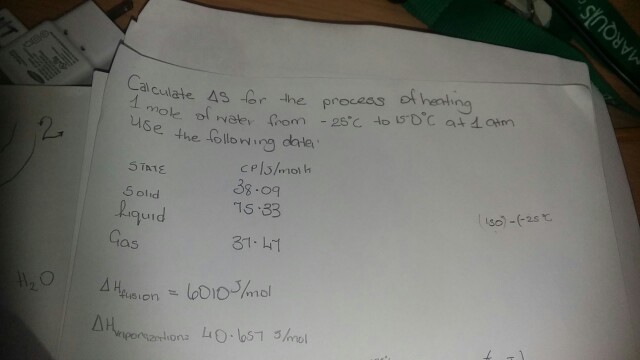 MARQUIS
Calculate ΔS for the process of heating
1 mole of water from -25°C to 150°C at 1 atm
use the following data:
STATE CP/J/molk
Solid 38.09
Liquid 75.33
Gas 37.47
(150)-(-25°C
H₂O
ΔHfusion = 6010 J/mol
ΔHvaporization= 40.657 J/mol
2